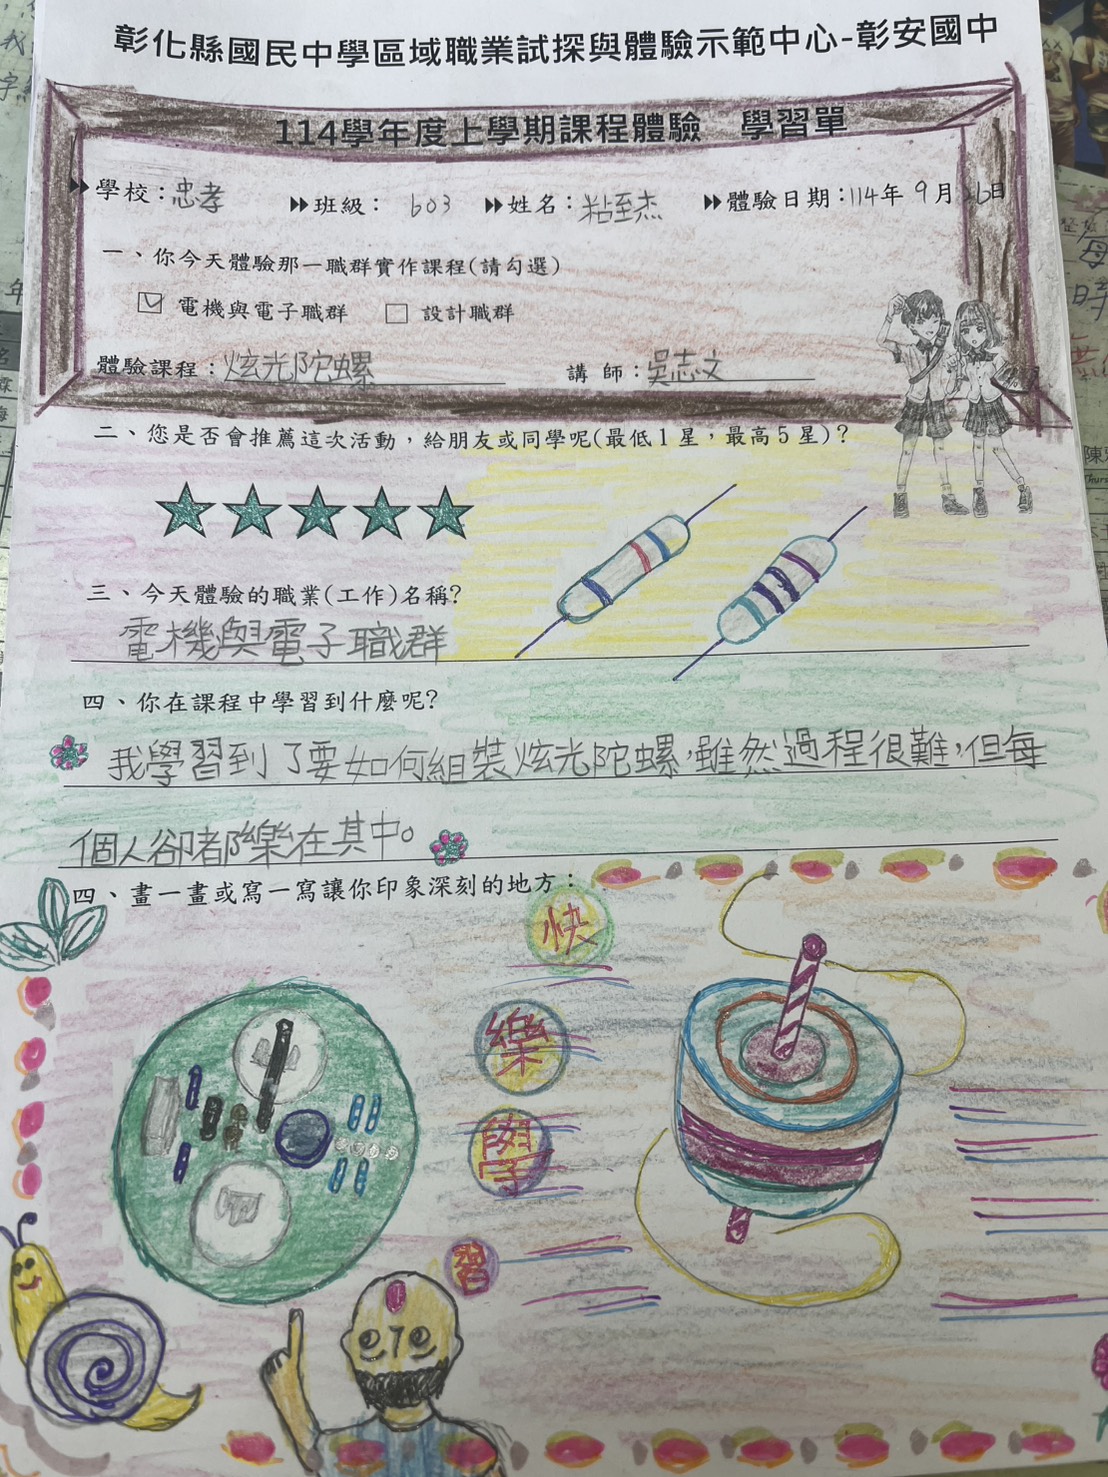 彰化縣國民中學區域職業試探與體驗示範中心-彰安國中
114學年度上學期課程體驗 學習單
學校：忠孝 班級： 603 姓名：粘至杰 體驗日期：114年 9月 26日
一、你今天體驗那一職群實作課程(請勾選)
電機與電子職群 設計職群
體驗課程：炫光陀螺 講 師：吳志文
二、您是否會推薦這次活動，給朋友或同學呢(最低1星，最高5星)？
三、今天體驗的職業(工作)名稱?
電機與電子職群
四、你在課程中學習到什麼呢?
我學習到了要如何組裝炫光陀螺，雖然過程很難，但每
個人卻都樂在其中。
四、畫一畫或寫一寫讓你印象深刻的地方：
快
樂
學
習